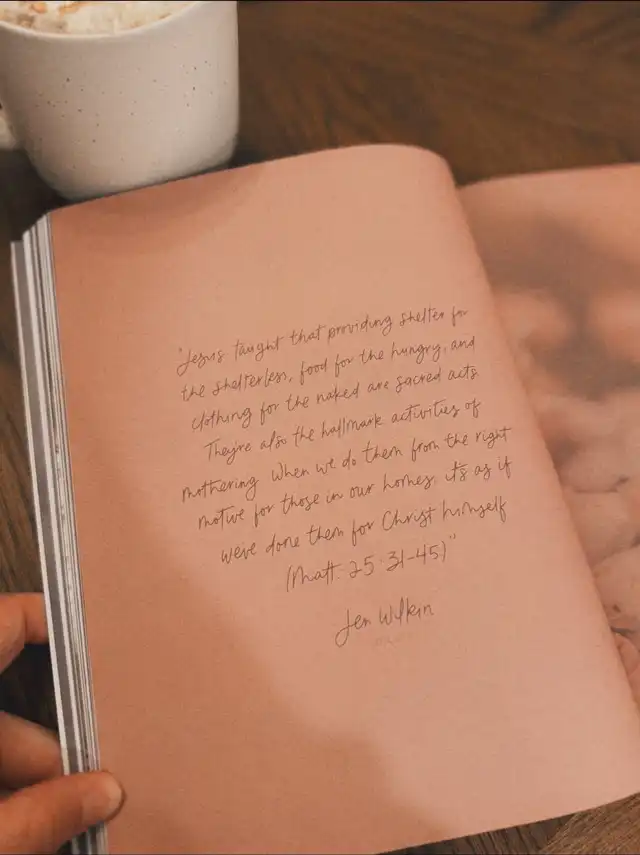 "Jesus taught that providing shelter for
the shelterless, food for the hungry, and
clothing for the naked are sacred acts
They're also the hallmark activities of
mothering When we do them from the right
motive for those in our homes, it's as if
we've done them for Christ himself
(Matt. 25:31-45)"
Jen Wilkin